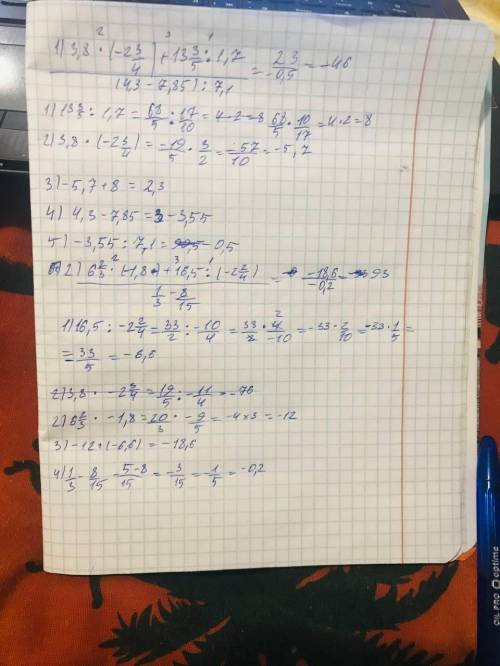 2 3 1
1) 3,8 · (-2 3/4) + 13 3/5 : 1,7 / (4,3 - 7,85) : 7,1 = 23/-0,5 = -46
1) 13 3/5 : 1,7 = 68/5 : 17/10 = 4·2=8 68/5 · 10/17 = 4·2=8
2) 3,8 · (-2 3/4) = -19/5 · 3/2 = -57/10 = -5,7
3) -5,7+8 = 2,3
4) 4,3-7,85 = -3,55
5) -3,55 : 7,1 = -0,5
2 3 1
2) 6 2/3 · (-1,8) + 16,5 : (-2 2/4) / 1/3 - 8/15 = -18,6/-0,2 = 93
1) 16,5 : -2 2/4 = 33/2 : -10/4 = 33/2 · 4/-10 = -33 · 2/10 = -33 · 1/5 =
= 33/5 = -6,6
2) 3,8 · -2 3/4 = 19/5 · -11/4 = -76
2) 6 2/3 · -1,8 = 20/3 · -9/5 = -4×3 = -12
3) -12+(-6,6) = -18,6
4) 1/3 - 8/15 = 5-8/15 = -3/15 = -1/5 = -0,2
OIL PRO optima